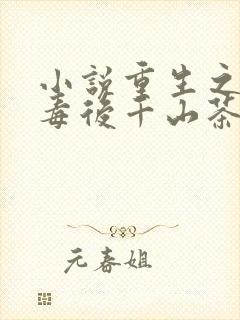 小説重生之
毒後千山茶
元春姐